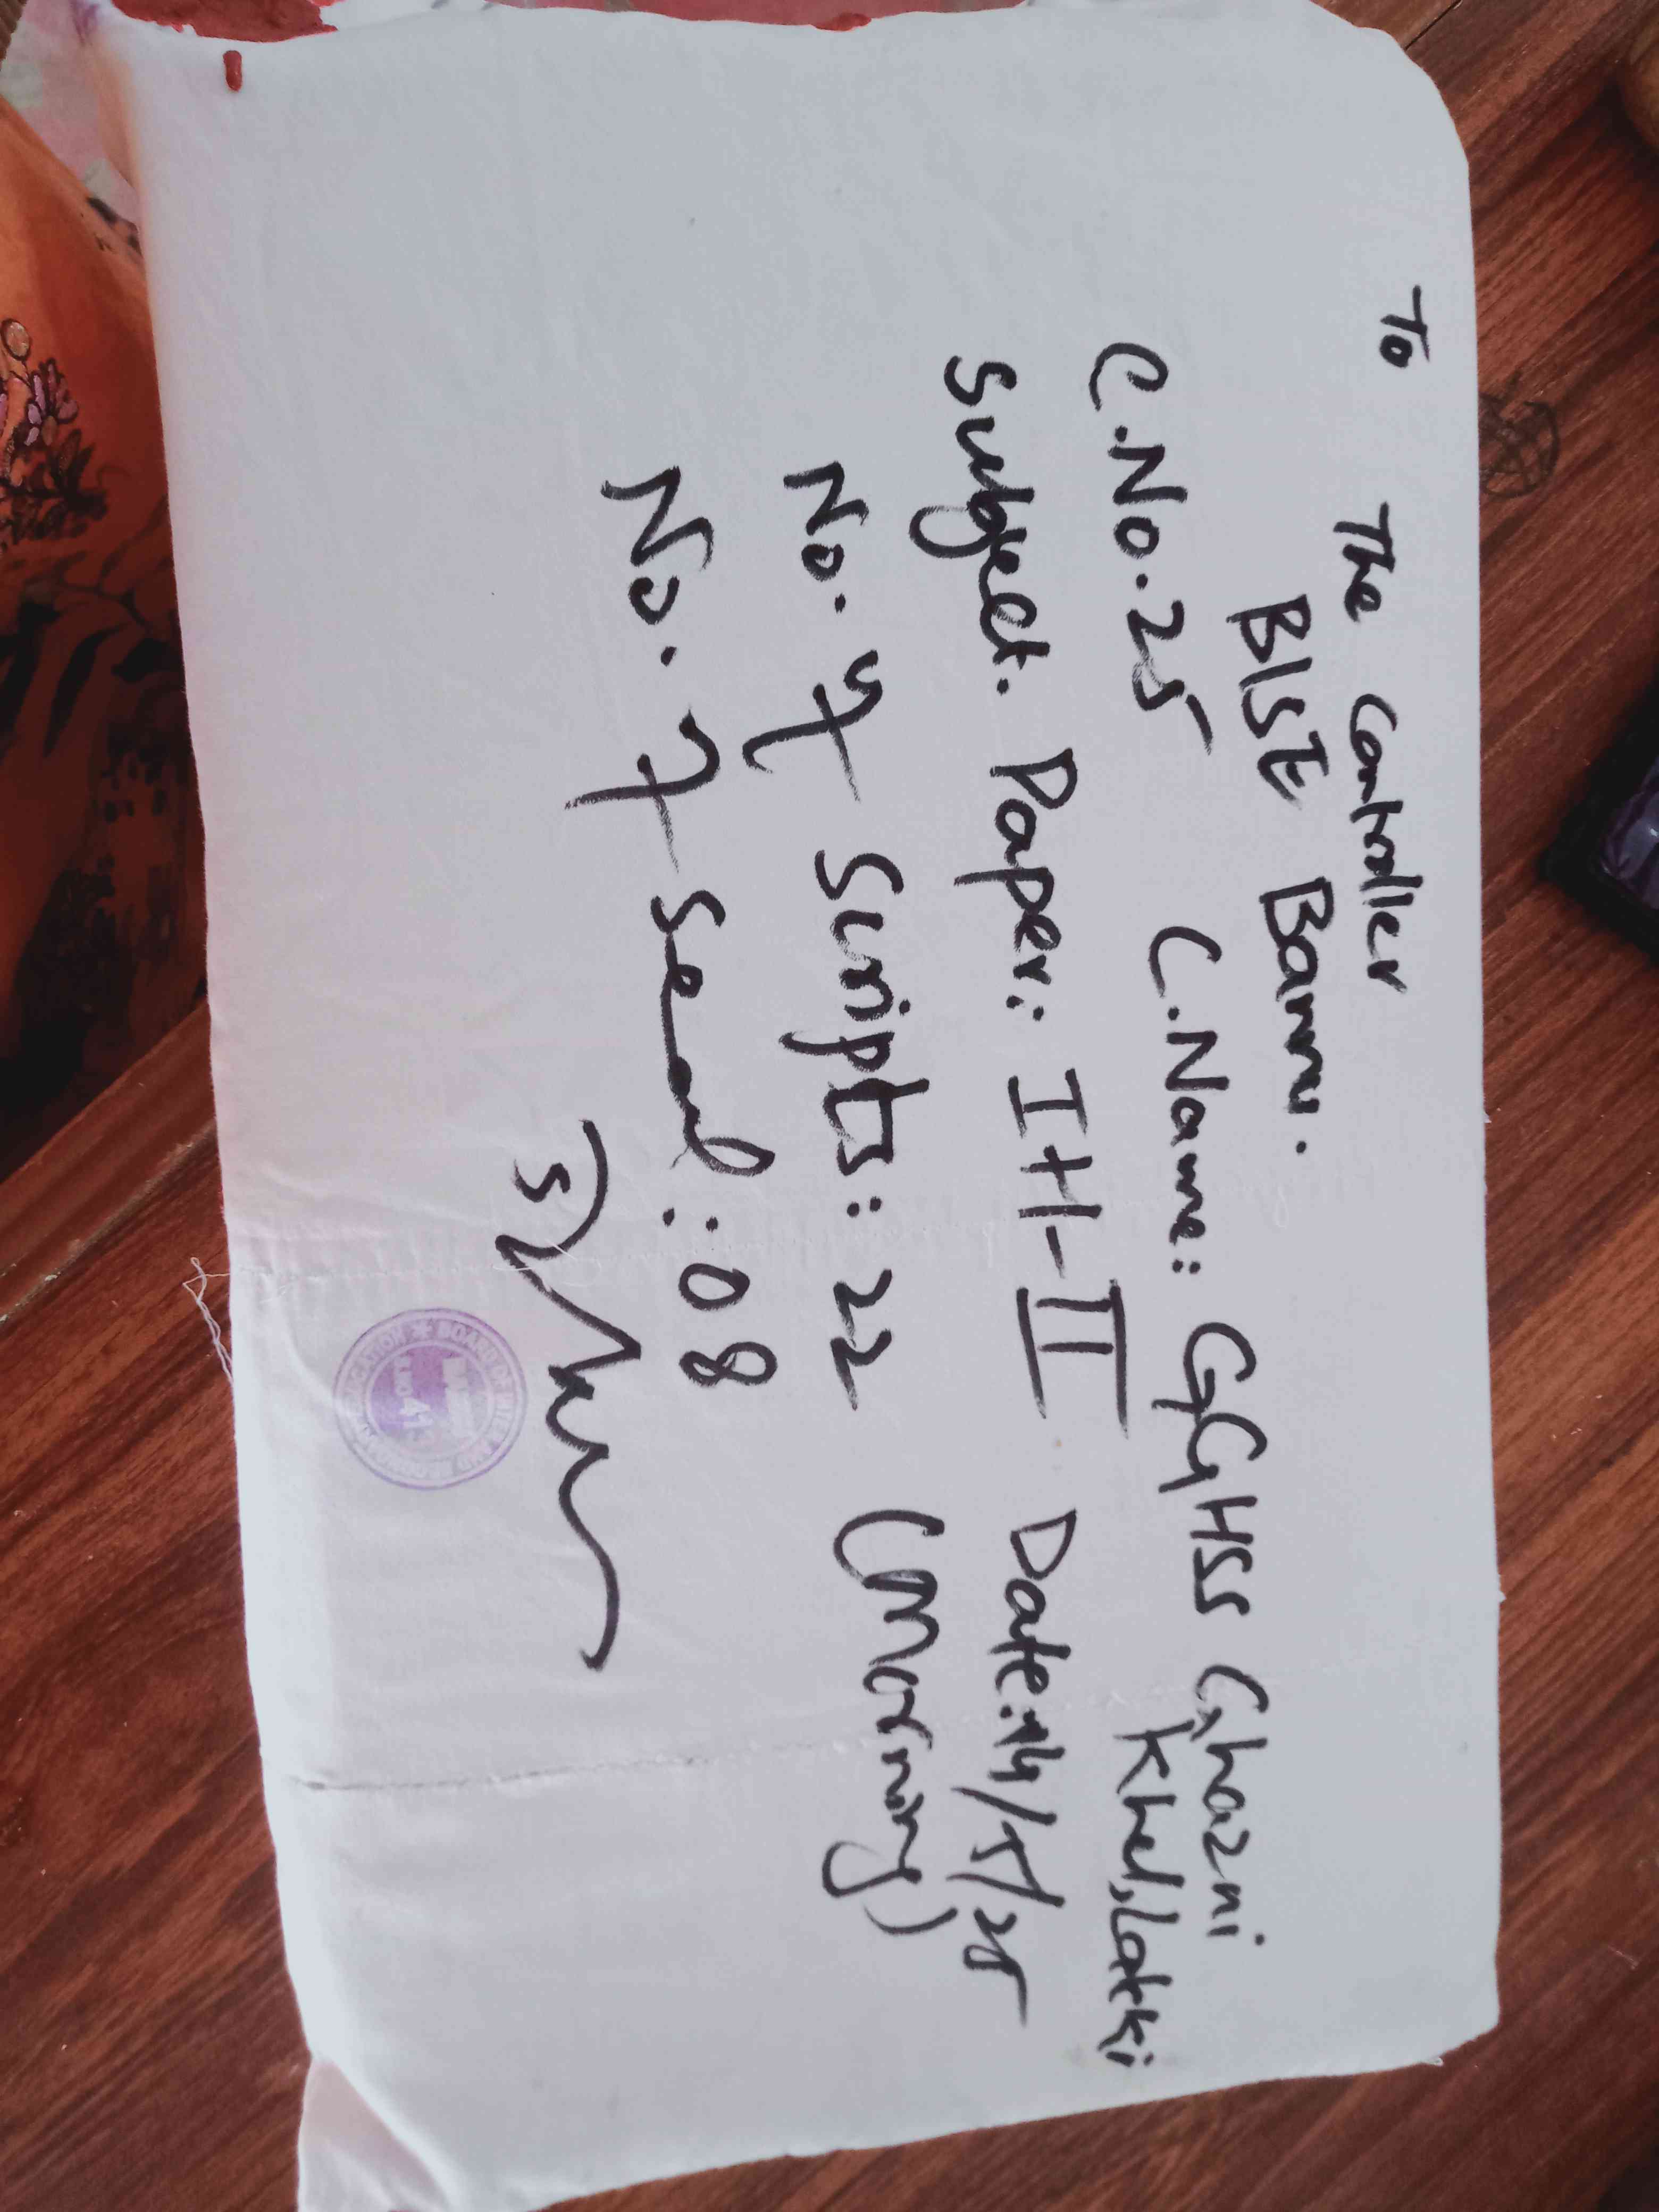 To The Controller
BISE Bannu.
C.No.25 C.Name: GGHSS Ghazni
Khel, Lakki
Subject. Paper: IH-II Date: 14/5/25
No. of Scripts: 22 (Morning)
No. of Seal: 08